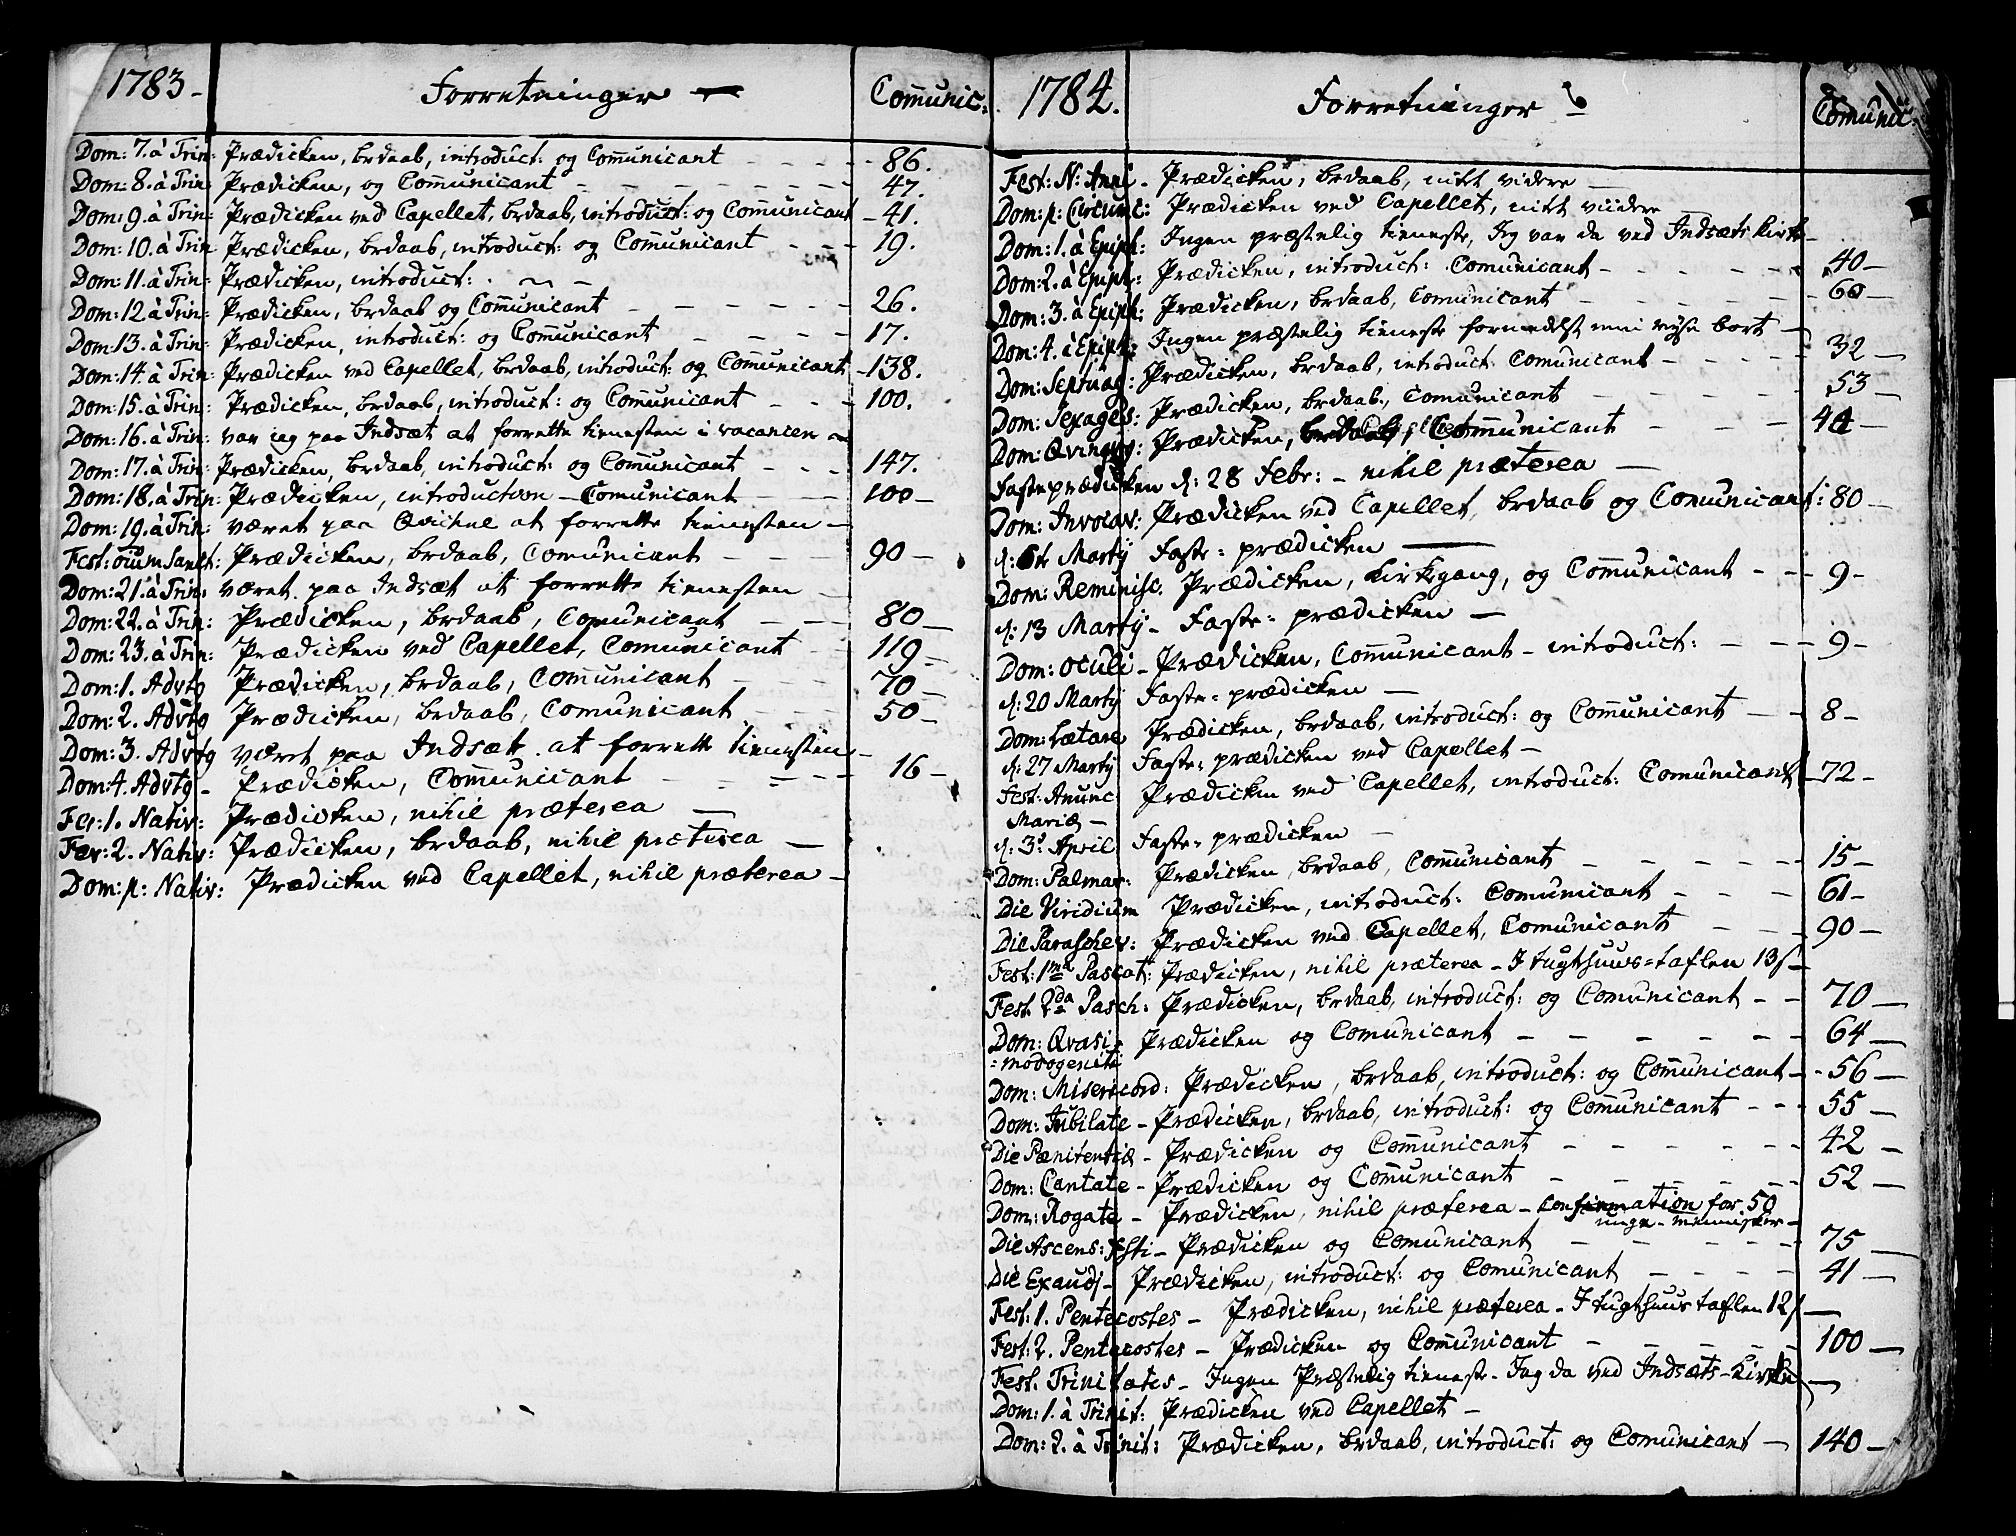 1783 - Forretninger - Communic:
Dom: 7. à Trin: Prædicken, brdaab, introduct: og Communicant - - - - 86.
Dom: 8. à Trin: Prædicken, og Communicant - - - - - - 47.
Dom: 9. à Trin: Prædicken ved Capellet, brdaab, introduct: og Communicant - 41.
Dom: 10. à Trin Prædicken, brdaab, introduct: og Communicant - - - 19.
Dom: 11. à Trin: Prædicken, introduct:
Dom: 12 à Trin: Prædicken, brdaab og Communicant - - - - - 26.
Dom: 13. à Trin: Prædicken, introduct: og Communicant - - - - 17.
Dom: 14. à Trin: Prædicken ved Capellet, brdaab, introduct: og Communicant - 138.
Dom: 15. à Trin: Prædicken, brdaab, introduct: og Communicant - - - 100.
Dom: 16. à Trin: var jeg paa Indsæt at forrette tienesten i vacancen -
Dom: 17. à Trin: Prædicken, brdaab, introduct: og Communicant - - - 147.
Dom: 18. à Trin: Prædicken, introduction - Comunicant - - 100 -
Dom: 19. à Trin: været paa Qvichne at forrette tienesten -
Fest: oium Sanct: Prædicken, brdaab, Comunicant - - - 90 -
Dom: 21. à Trin: været paa Indsæt at forrette tienesten -
Dom: 22. à Trin: Prædicken, brdaab, Comunicant - - - 80 -
Dom: 23. à Trin: Prædicken ved Capellet, Comunicant - - 119 -
Dom: 1. Advtg Prædicken, brdaab, Communicant - - - 70 -
Dom: 2. Advtg Prædicken, brdaab, Comunicant - - - 50 -
Dom: 3. Advtg været paa Indsæt at forrette tienesten -
Dom: 4. Advtg - Prædicken, Communicant - - - - 16 -
Fer: 1. Nativ: Prædicken, nihil præterea -
Fer: 2. Nativ: Prædicken, brdaab, nihil præterea -
Dom: p: Nativ: Prædicken ved Capellet, nihil præterea -
1784. Forretninger Comunic:
Fest: N: Anni - Prædicken, brdaab, intet videre -
Dom: p: Circumc: Prædicken ved Capellet, intet viidere -
Dom: 1. à Epiph: Ingen præstelig tieneste, Jeg var da ved Indsæts kirke -
Dom: 2. à Epiph: Prædicken, introduct: Comunicant - - - - - 40 -
Dom: 3. à Epiph: Prædicken, brdaab, Comunicant - - - - - 60 -
Dom: 4. à Epiph: Ingen præstelig tieneste formedelst min rejse bort -
Dom: Septuag: Prædicken, brdaab, introduct: Comunicant - - - - 32 -
Dom: Sexages: Prædicken, brdaab, Comunicant - - - - 53 -
Dom: Qvinqvg: Prædicken, Communicant - - - - 44 -
Fasteprædicken d: 28 Febr: - nihil præterea -
Dom: Invocav: Prædicken ved Capellet, brdaab og Comunicant: 80 -
d: 6te Martij Faste-prædicken -
Dom: Reminisc: Prædicken, kirkegang, og Communicant - - - 9 -
d: 13 Martij - Faste-prædicken -
Dom: Oculi - Prædicken, Communicant - introduct: - - - 9 -
d: 20 Martij Faste-prædicken -
Dom: Lætare Prædicken, brdaab, introduct: og Communicant - - 8 -
d: 27 Martij Faste-prædicken ved Capellet -
Fest: Anunc Prædicken ved Capellet, introduct: Comunicant - 72 -
Mariæ -
d: 3die April Faste-prædicken -
Dom: Palmar: Prædicken, brdaab, Communicant - - - - - 15 -
Die Viridium Prædicken, introduct: Comunicant - - - - 61 -
Die Paraschev: Prædicken ved Capellet, Comunicant - - - 90 -
Fest: 1ma Pascat: Prædicken, nihil præterea - I tugthuus-taflen 13 s -
Fest. 2da Pasch: Prædicken, brdaab, introduct: og Comunicant - - 70 -
Dom: Qvasi- Prædicken og Comunicant - - - - - 64 -
=modogeniti
Dom: Misericord: Prædicken, brdaab, introduct: og Communicant - - 56 -
Dom: Jubilate - Prædicken, brdaab, introduct: og Communicant - - - 55 -
Die Pænitentiæ - Prædicken og Communicant - - - - - 42 -
Dom: Cantate - Prædicken og Communicant - - - - - 52 -
Dom: Rogate - Prædicken, nihil præterea - Confirmation for 50
unge - mennisker -
Die Ascens: Xsti - Prædicken og Comunicant - - - - - 75 -
Die Exaudj - Prædicken, introduct: og Comunicant - - - - 41 -
Fest: 1. Pentecostes - Prædicken, nihil præterea - I tugthuus taflen 12 s -
Fest: 2. Pentecostes - Prædicken og Communicant - - - - 100 -
Fest. Trinitates - Ingen Præstelig tieneste - Jeg da ved Indsæts-Kirke -
Dom: 1. à Trinit: Prædicken ved Capellet -
Dom: 2. à Trinit: Prædicken, brdaab, introduct: og Comunicant - 140 -